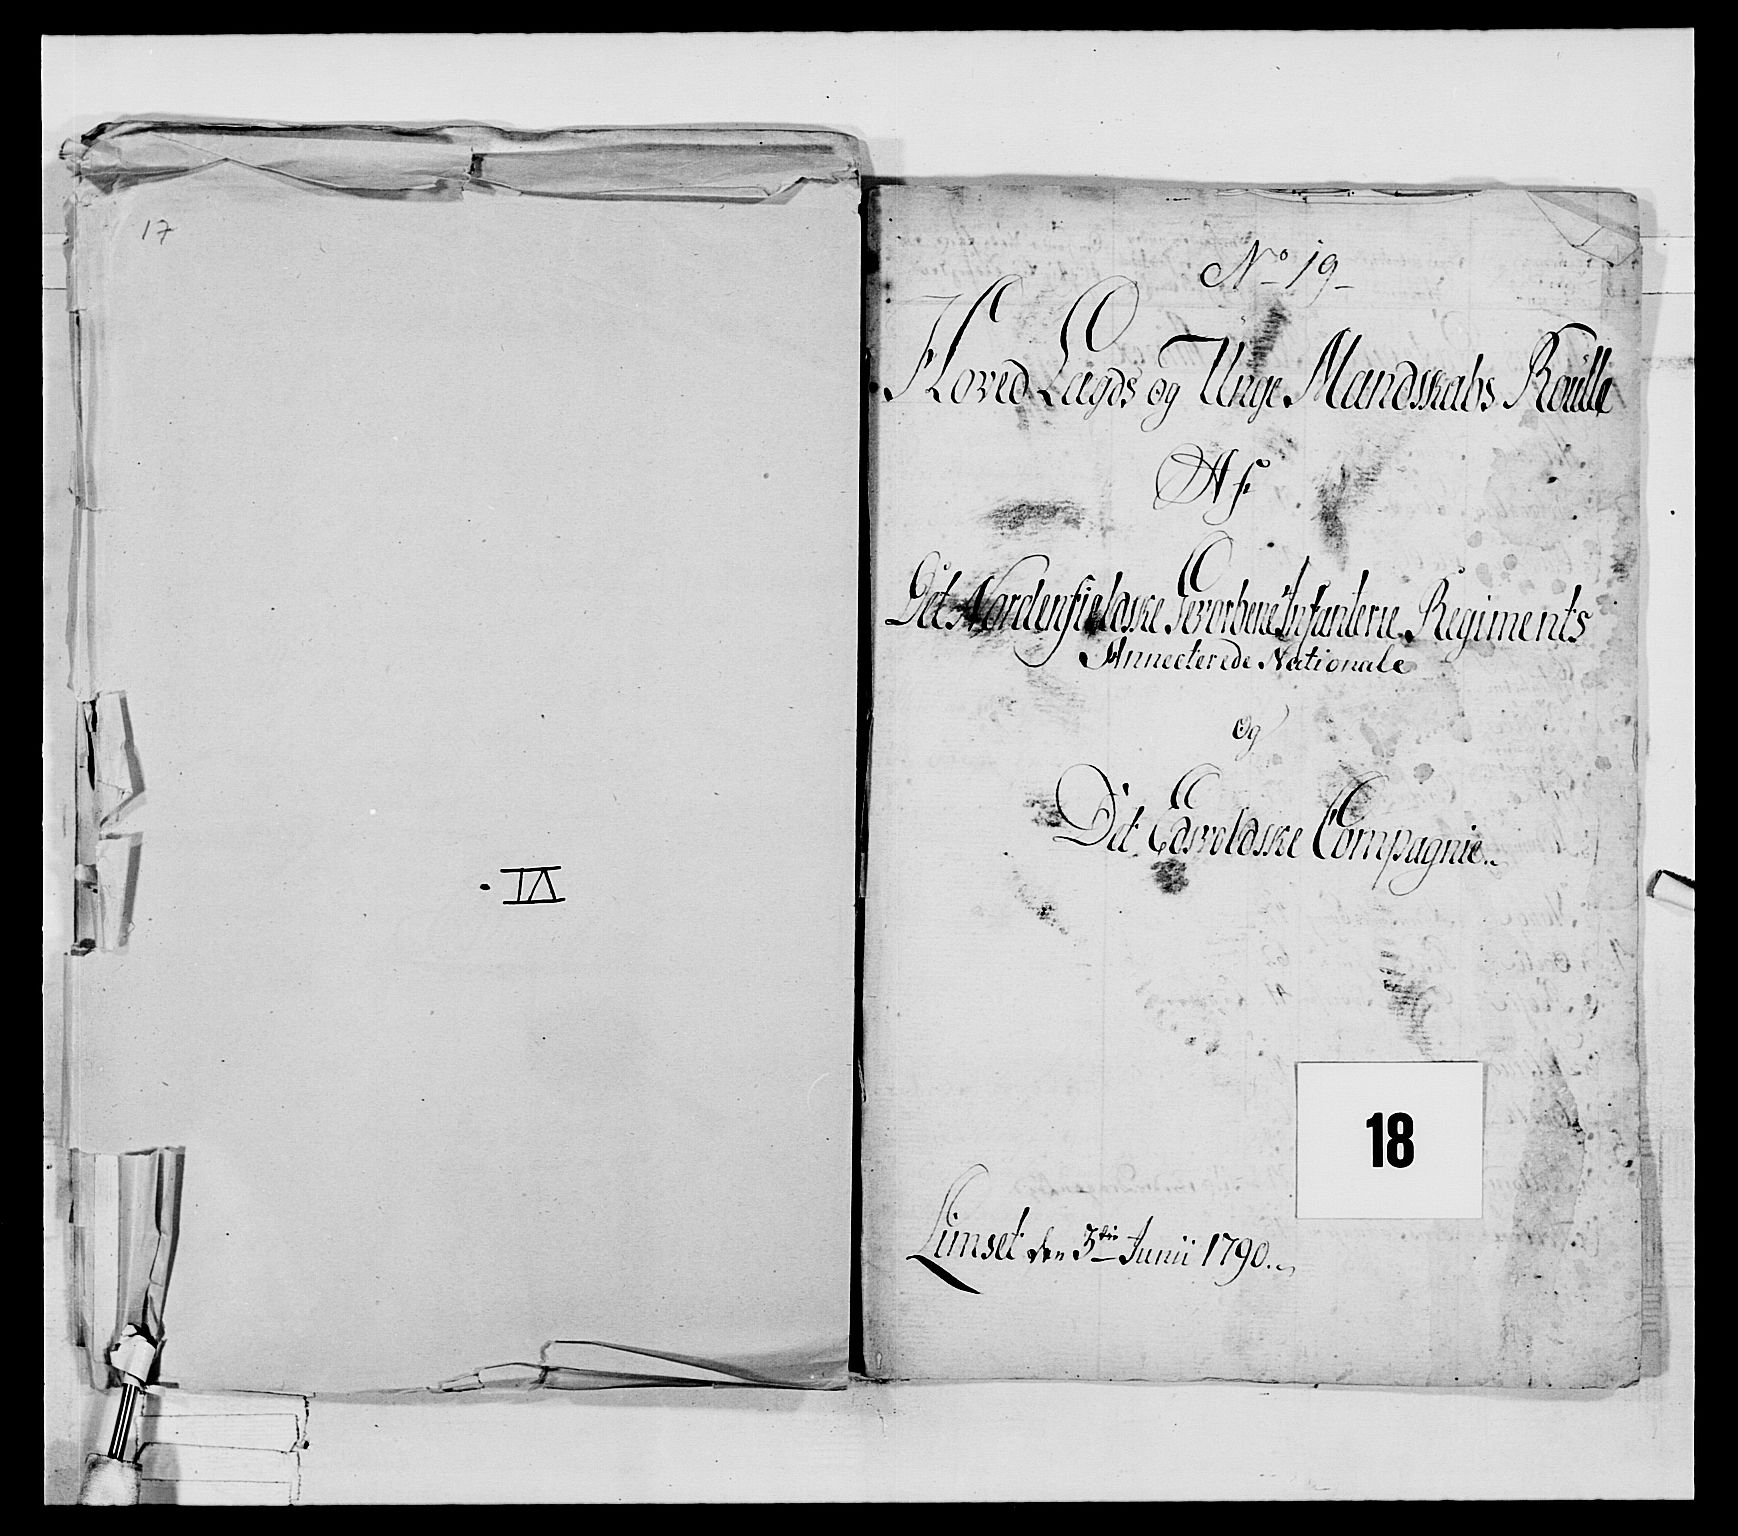 17
IV
No 19
Hoved Lægds og Unge Mandskabs Roulle
Af
Det Nordenfieldske Gevorbene Infanterie Regiments
Annecterede Nationale
og
Det Edsvoldske Compagnie
18
Limset den 3die Junii 1790